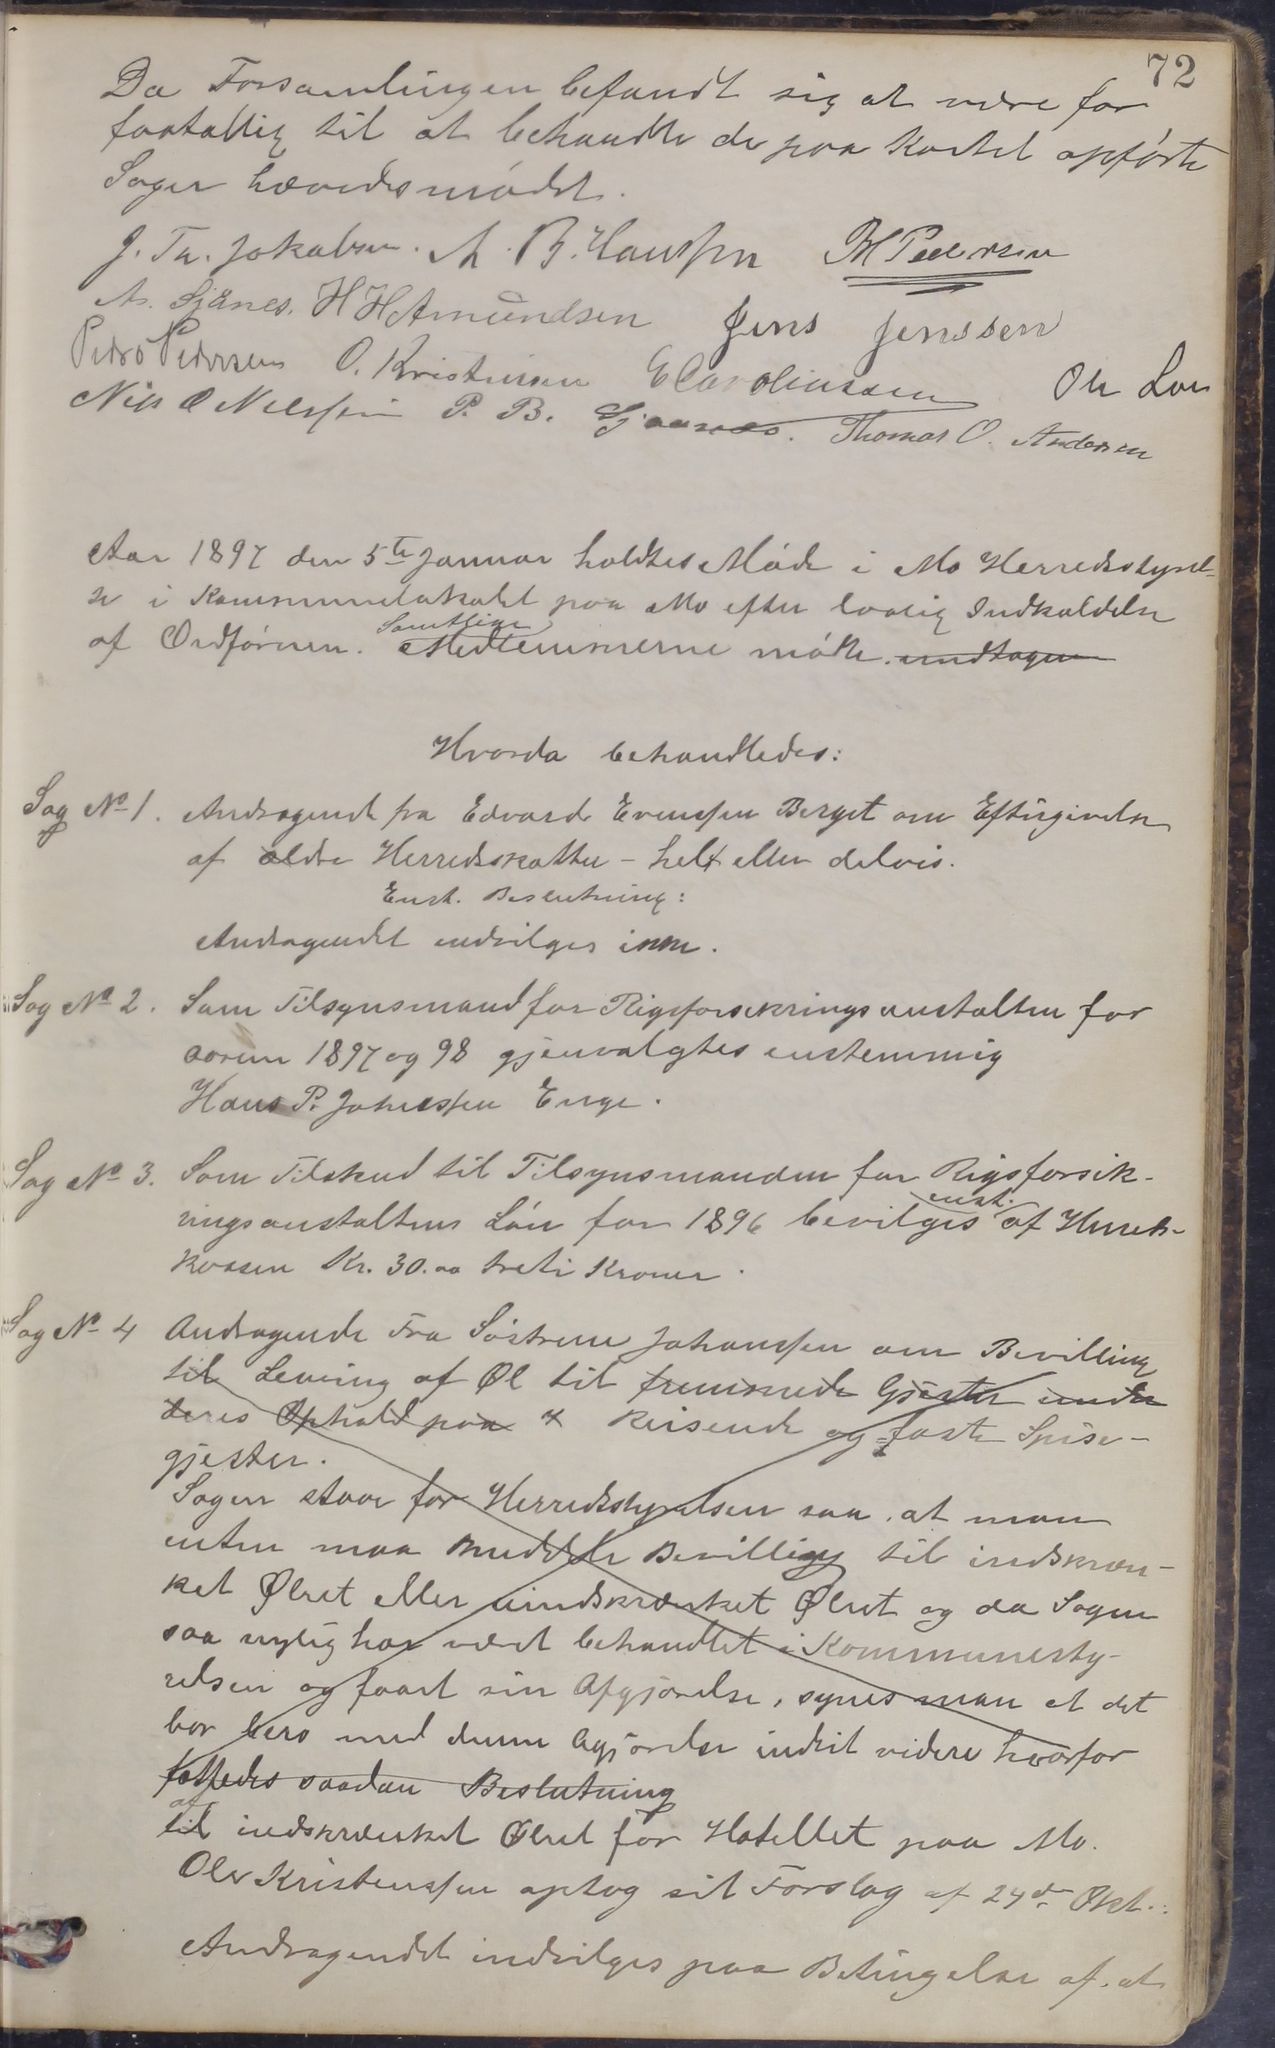 72
Da Forsamlingen befandt sig at være for
faatallig til at behandle de paa Kartet opførte
Sager hævedes mødet.
J. Th. Jakobsen. A. B. Hanssen P M Pedersen
A. Sjånes. H H Amundsen Jens Jenssen
Peder Pedersen O. Kristensen E Carolinssen Ole Lon
Nils O Nilssen P. B. Sjaanæs. Thomas O. Andersen
Aar 1897 den 5te Januar holdtes Møde i Mo Herredsstyrel-
se i Kommunelokalet paa Mo efter lovlig Indkaldelse
af Ordføreren. Samtlige Medlemmerne mødte. undtagen
Hvorda behandledes:
Sag No 1. Andragende fra Edvard Evenssen Berget om Eftergivelse
af ældre Herredsskatter - helt eller delvis.
Enst. Beslutning:
Andragendet indvilges ikke.
Sag No 2. Som Tilsynsmand for Rigsforsikringsanstalten for
aarene 1897 og 98 gjenvalgtes enstemmig
Hans P. Johnessen Enge.
Sag No 3. Som Tilskud til Tilsynsmanden for Rigsforsik-
ringsanstaltens Løn for 1896 bevilges enst. af Herreds-
kassen Kr. 30.00 treti Kroner.
Sag No 4 Andragende Fra Søstrene Johanssen om Bevilling
til Levering af Øl til fremmede Gjester under
deres Ophold paa x Reisende og faste Spise-
gjester.
Sagen staar for Herredsstyrelsen saa, at man
enten maa meddele Bevilling til indskræn-
ket Ølret eller uindskrænket Ølret og da Sagen
saa nylig har været behandlet i Kommunesty-
relsen og faaet sin Afgjørelse, synes man at det
bør bero med denne Agjørelse indtil videre hvorfor
fattedes saadan Beslutning
af
til indskrænket Ølret for Hotellet paa Mo.
Ole Kristenssen optog sit Forslag af 24de Okt.:
Andragendet indvilges paa Betingelse af, at